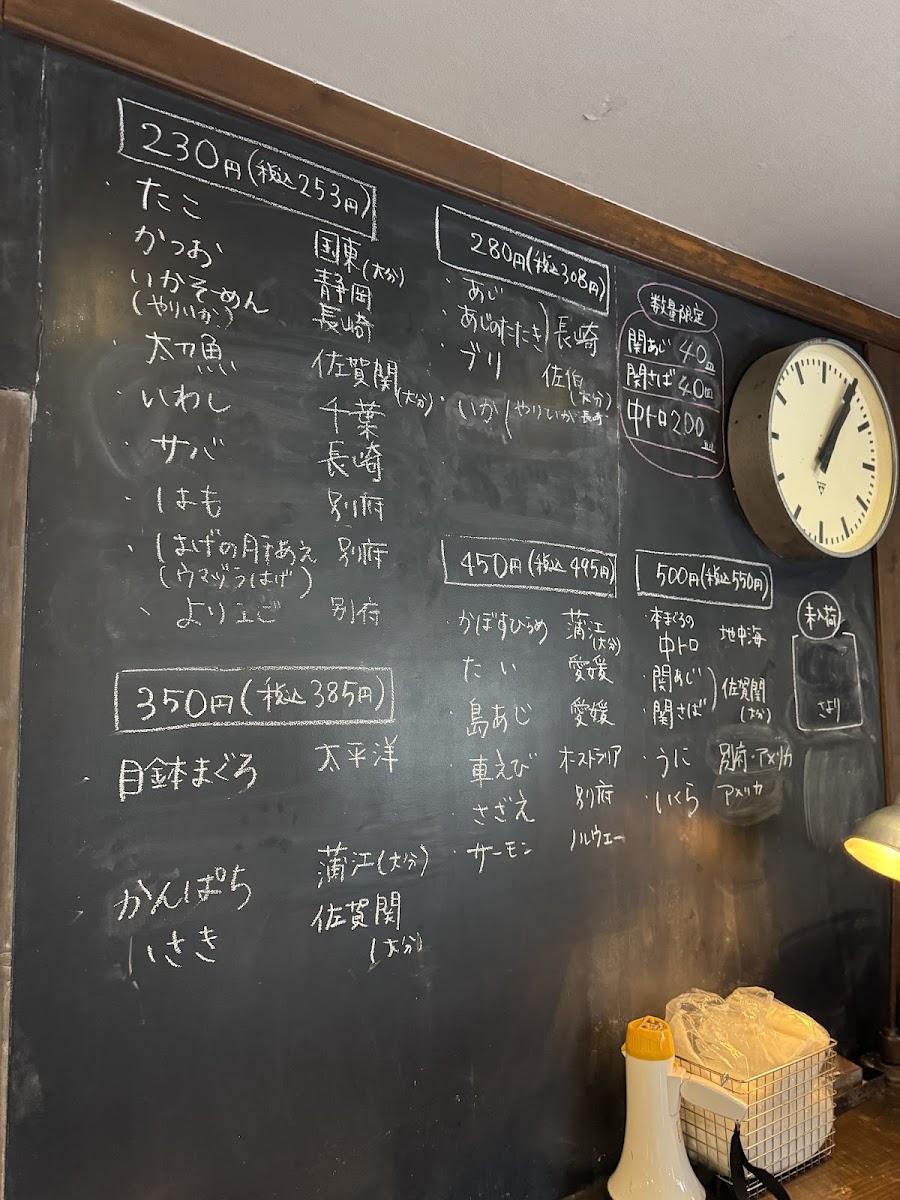 230円(税込253円)
・たこ 国東(大分)
かつお 静岡
・いかそーめん 長崎
(やりいか)
・太刀魚 佐賀関(大分)
・いわし 千葉
・サバ 長崎
・はも 別府
・はげの肝あえ 別府
(ウマヅラはげ)
・よりえご 別府
350円(税込385円)
目鉢まぐろ 太平洋
かんぱち 蒲江(大分)
いさき 佐賀関
(大分)
280円(税込308円)
・あじ
・あじのたたき 長崎
・ブリ 佐伯
(大分)
・いか(やりいか 長崎
450円(税込495円)
・かぼすひらめ 蒲江
(大分)
・たい 愛媛
・島あじ 愛媛
・車えび オーストラリア
・さざえ 別府
・サーモン ノルウェー
数量限定
関あじ 40皿
関さば 40皿
中トロ 200皿
500円(税込550円)
・本まぐろの
中トロ 地中海
・関あじ
・関さば 佐賀関
(大分)
・うに 別府・アメリカ
・いくら アメリカ
未入荷
さより